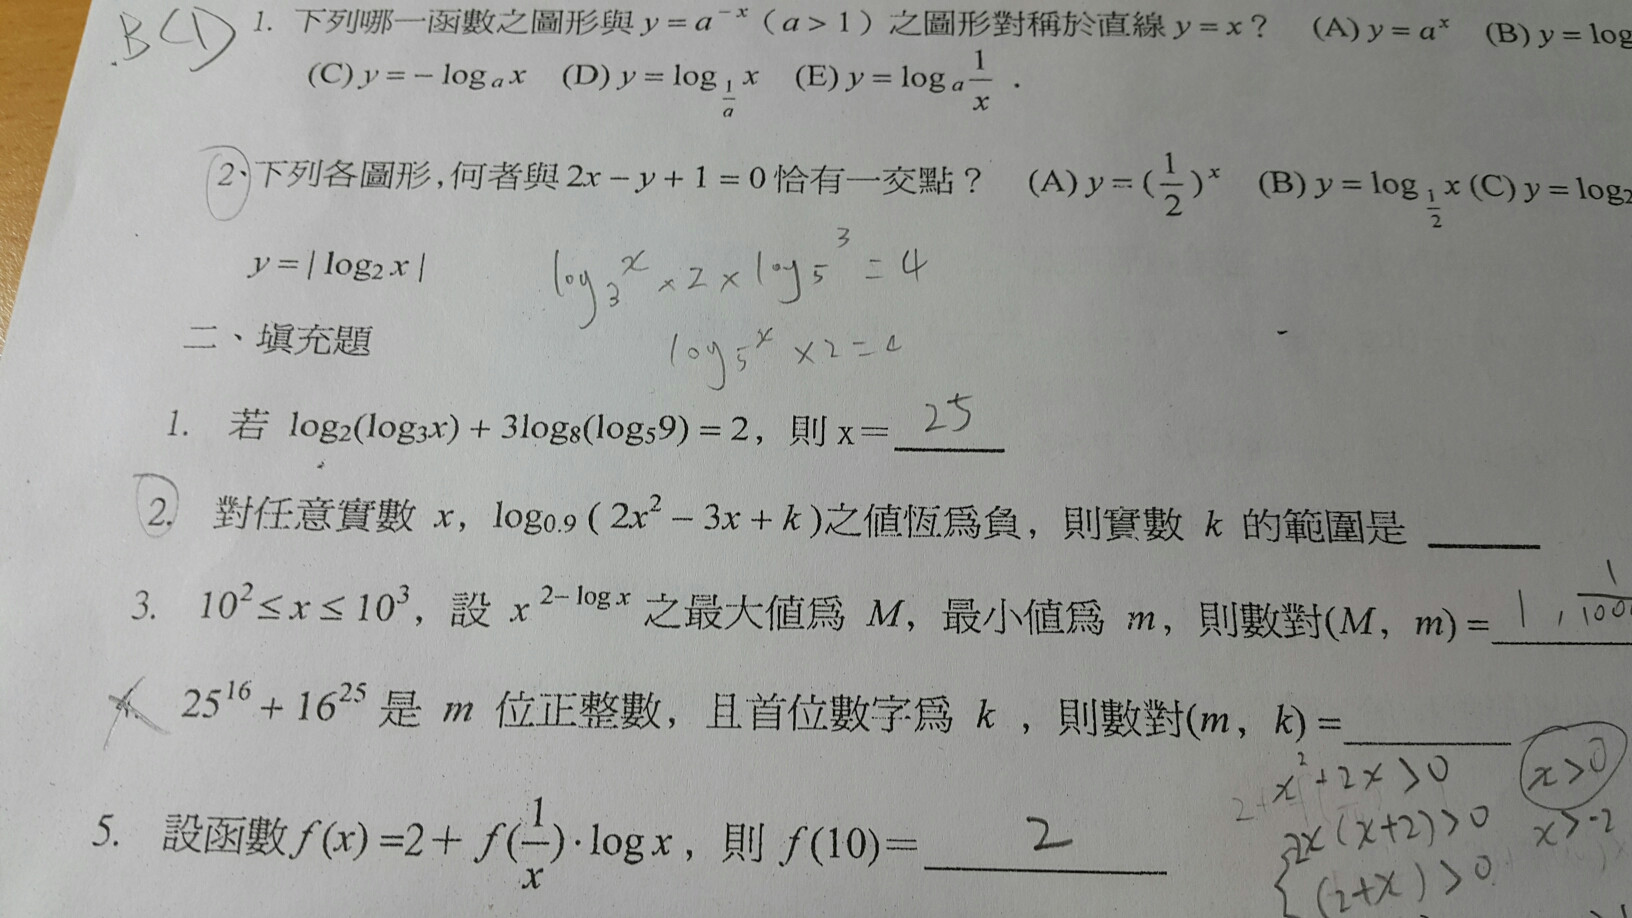 B(D) 1. 下列哪一函數之圖形與 y = a^-x ( a > 1 ) 之圖形對稱於直線 y = x ? (A) y = a^x (B) y = log
(C) y = - log_a x (D) y = log_{1/a} x (E) y = log_a 1/x .
2、下列各圖形,何者與 2x - y + 1 = 0 恰有一交點? (A) y = (1/2)^x (B) y = log_{1/2} x (C) y = log2
y = | log2 x |
log_3 x × 2 × log_5 3 = 4
log_5 x × 2 = 4
二、填充題
1. 若 log2(log3x) + 3log8(log59) = 2, 則 x = 25
2. 對任意實數 x, log0.9 ( 2x^2 - 3x + k )之值恆為負, 則實數 k 的範圍是 ____
3. 10^2 ≤ x ≤ 10^3, 設 x^{2- log x} 之最大值為 M, 最小值為 m, 則數對(M, m) = 1 ,
4. 25^16 + 16^25 是 m 位正整數, 且首位數字為 k , 則數對(m, k) = ____
x^2 + 2x > 0 x > 0
2x (x+2) > 0 x > -2
5. 設函數 f (x) =2+ f(1/x) · log x, 則 f (10) = 2
(2+x) > 0